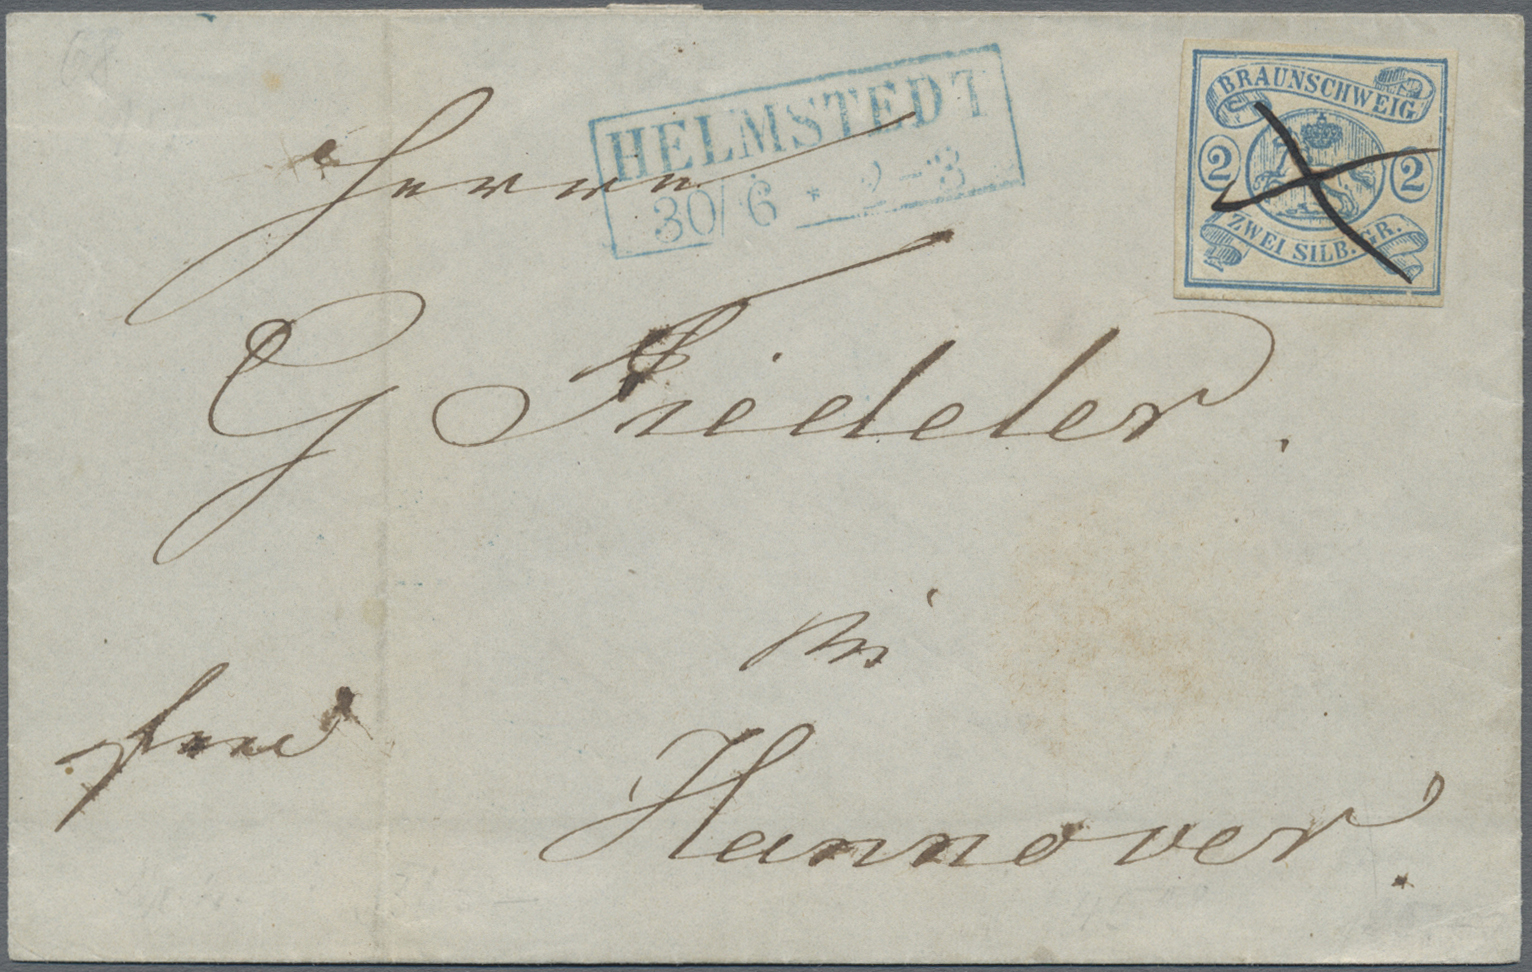 68
HELMSTEDT
30/6 * 2-3
BRAUNSCHWEIG
2 2
ZWEI SILB. GR.
Herrn
G Fiedeler.
in
free
Hannover.